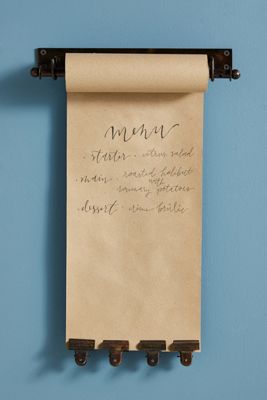 menu
· starter · citrus salad
· main · roasted halibut
with
rosemary potatoes
· dessert · crème brûlée